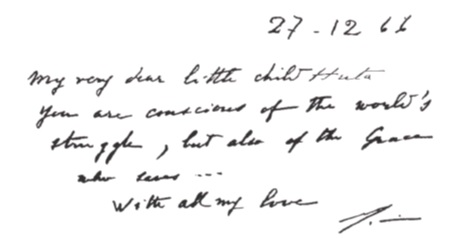 27-12 66
My very dear little child Huta
You are conscious of the world's
struggle, but also of the Grace
who saves ...
With all my love